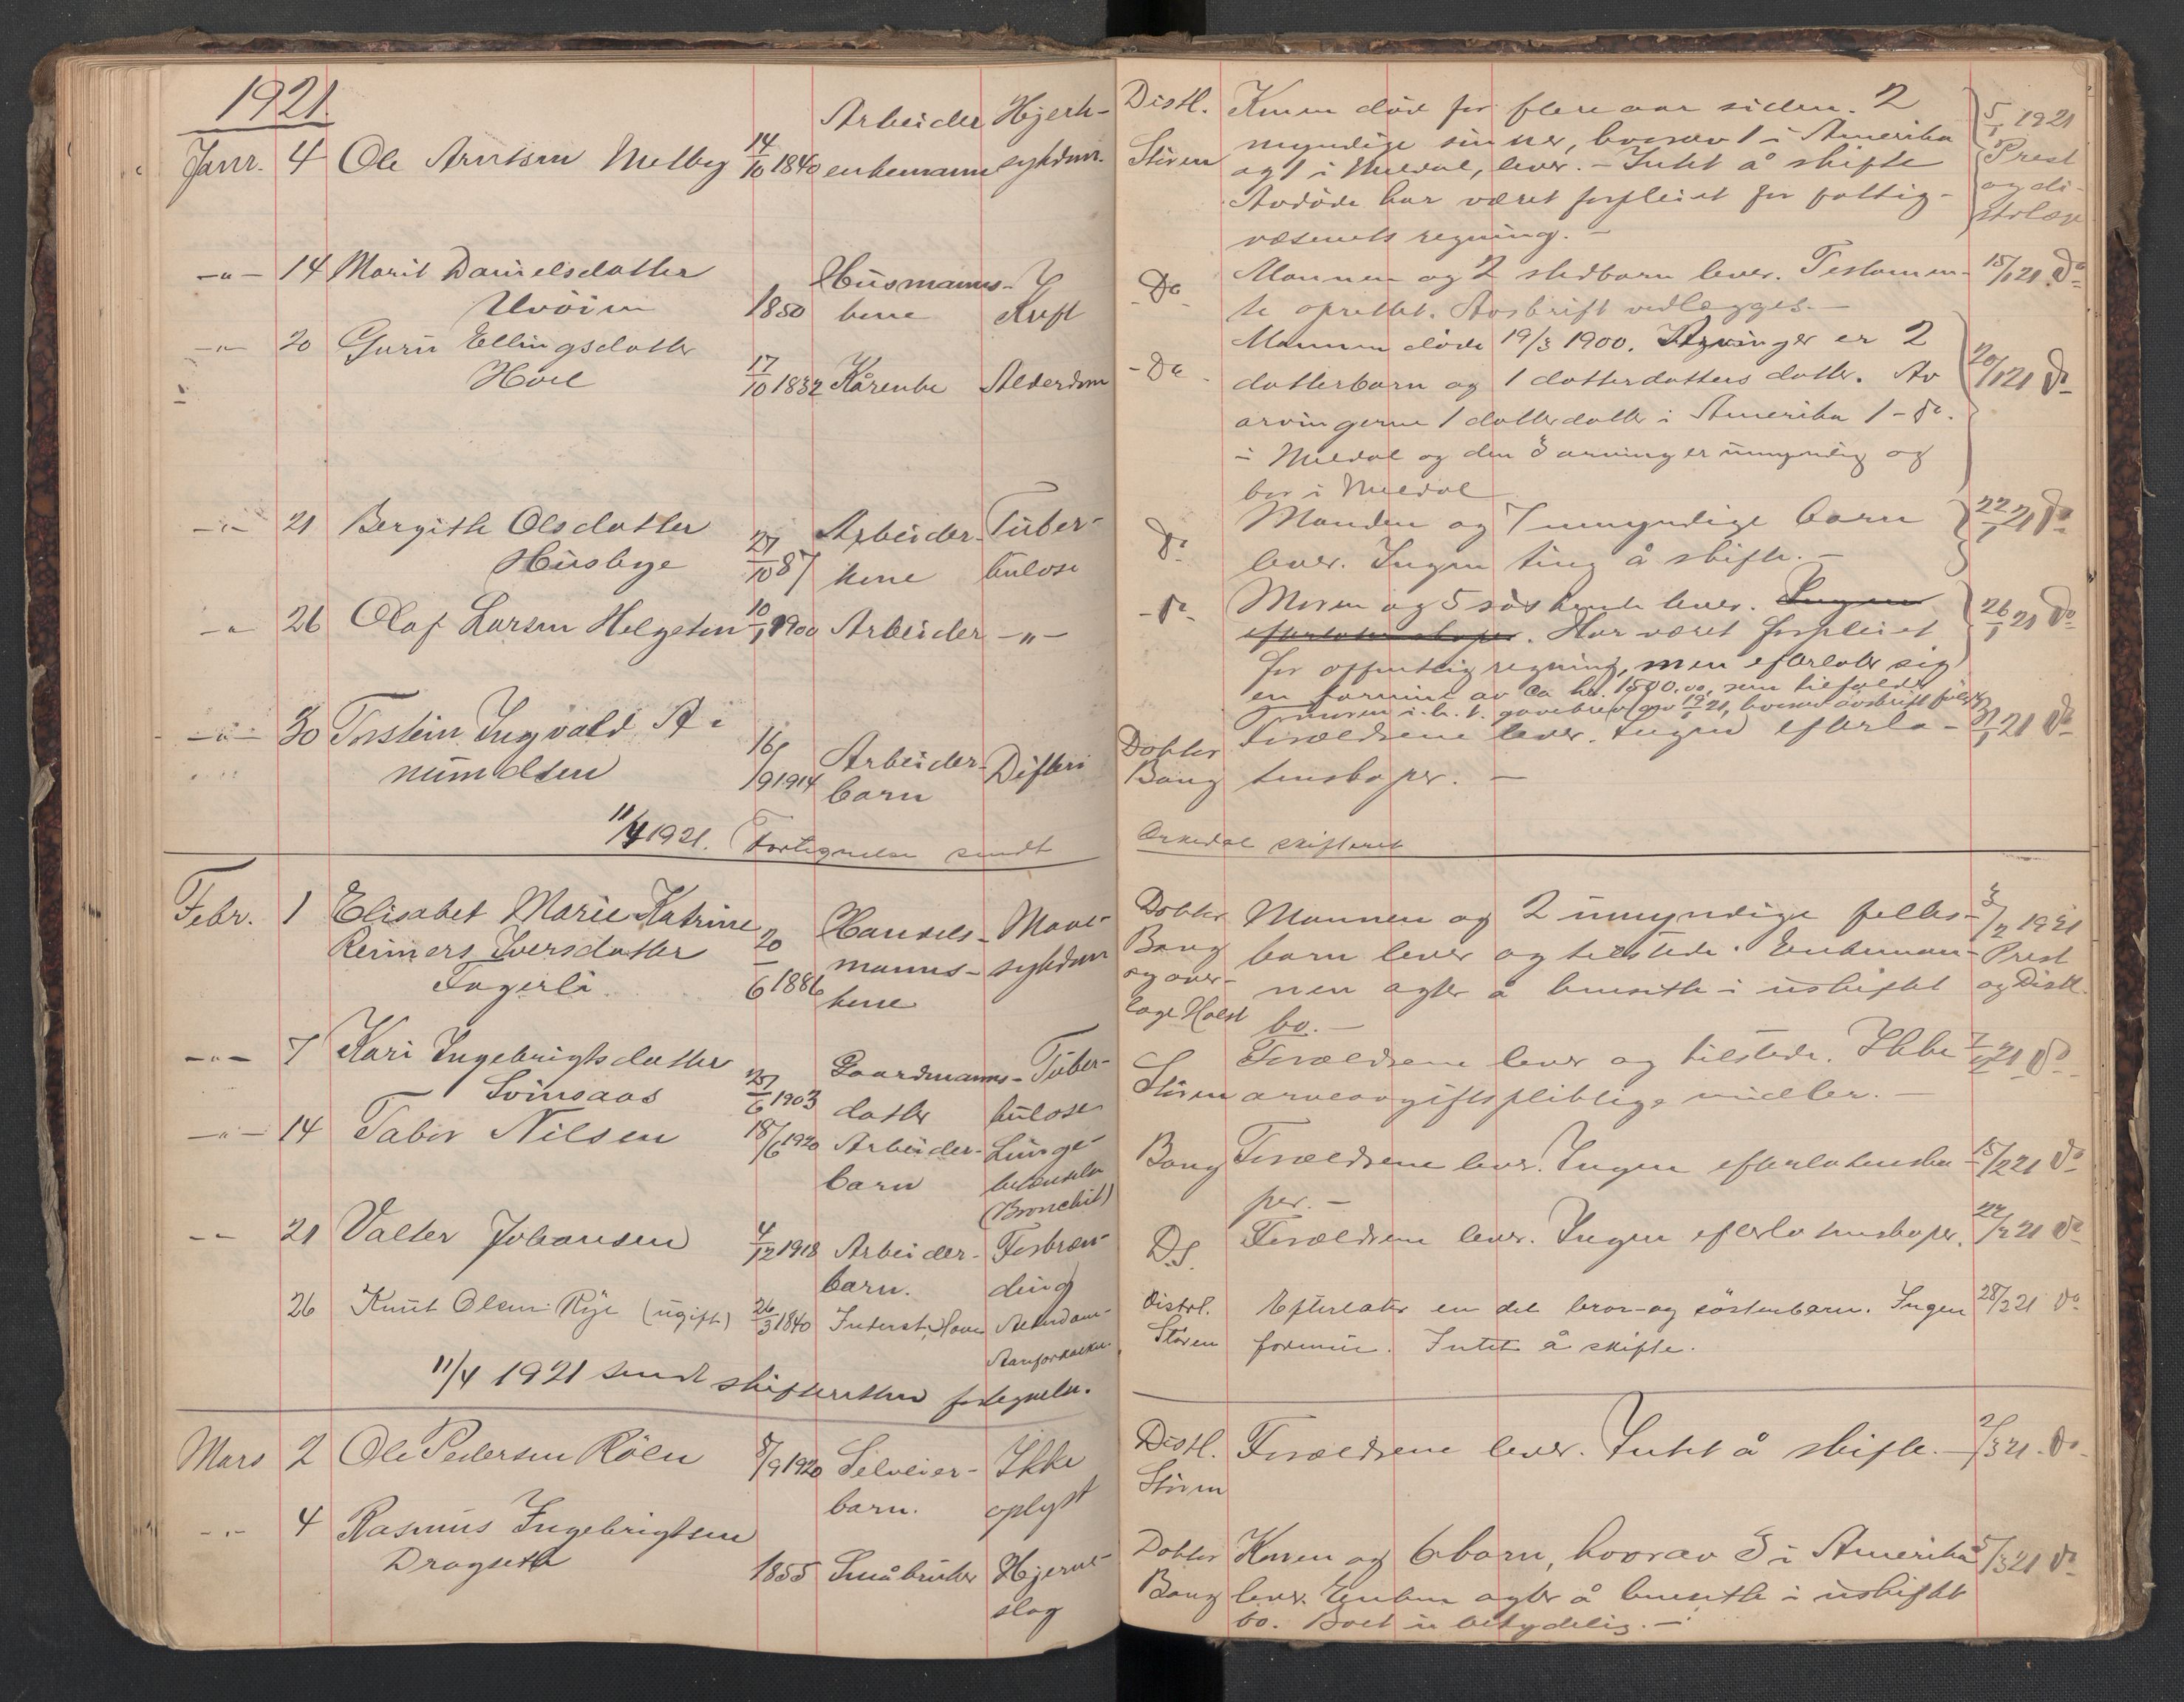 1921.
Janr. 4 Ole Arntsen Melby 14/10 1840 Arbeider enkemann Hjerte-
sykdom.
-"- 14 Marit Danielsdatter
1850 Husmanns-
kone Kreft
-"- 20 Guru Ellingsdatter
Hoel 17/10 1832 Kårenke Alderdom
-"- 21 Bergith Olsdatter
Husbye 27/10 87 Arbeider-
kone Tuber-
kulose
-"- 26 Olaf Larsen Helgeten 10/1 1900 Arbeider -"-
-"- 30 Torstein Ingvald A-
mundsen 16/9 1914 Arbeider-
barn Difteri
11/4 1921. Fortegnelse sendt
Febr. 1 Elisabet Marie Katrine
Reimers Iversdatter
Fagerli. 20/6 1886 Handels-
manns-
kone Mave-
sykdom
-"- 7 Kari Ingebrigtsdatter
Svinsaas 25/6 1903 Gaardmanns-
datter Tuber-
kulose
-"- 14 Tabor Nilsen 18/6 1920 Arbeider-
barn Lunge-
betændelse
(Bronchit)
-"- 21 Valter Johansen 4/12 1918 Arbeider-
barn. Forbræn-
ding
26 Knut Olsen Rye (ugift) 26/3 1840 Alderdom-
Aareforkalkn.
11/4 1921 sendt skifteretten fortegnelse.
Mars 2 Ole Pedersen Röen 8/9 1920 Selveier-
barn. Ikke
oplyst
-"- 4 Rasmus Ingebrigtsen
Dragseth 1855 Småbruker Hjerne-
slag
Distl.
Stören
Konen död for flere aar siden. 2
myndige sönner, hvorav 1 i Amerika
og 1 i Meldal, lever. - Intet å skifte
Avdöde har været forpleiet for fattig-
væsenets regning. -
5/1 1921
Prest
og di-
strlæge
-Do-
Mannen og 2 stedbarn lever. Testamen-
te oprettet. Avskrift vedlægges. -
15/1 21 Do
-Do-
Mannen döde 19/3 1900. Arvinger er 2
datterbarn og 1 datterdatters datter. Av
arvingerne 1 datterdatter i Amerika 1 - do.
i Meldal og den 3 arving er umyndig og
bor i Meldal
20/1 21 Do
Do
Manden og 7 umyndige barn
lever. Ingen ting å skifte. -
22/1 21 Do
-Do-
Moren og 5 söskende lever. Ingen
efterlatenskaper. Har været forpleiet
for offentlig regning, men efterlater sig
en formue av ca kr. 1500.00, som tilfalder
moren i h. t. gavebrev av 19/1 21, hvorav avskrift fölger
26/1 21 Do
Dokter
Bang
Forældrene lever. Ingen efterla-
tenskaper. -
31/1 21 Do
Orkedal skifteret
Dokter
Bang
og over-
læge Holst
Mannen og 2 umyndige felles-
barn lever og tilstede. Enkeman-
nen agter å hensitte i uskiftet
bo. -
3/2 1921
Prest
og Distl.
Stören
Forældrene lever og tilstede. Ikke
arveavgiftspliktige midler. -
7/2 21 Do
Bang
Forældrene lever. Ingen efterlatenska-
per. -
15/2 21 Do
D.S.
Forældrene lever. Ingen efterlatenskaper.
22/2 21 Do
Distrl.
Stören
Efterlater en del bror- og sösterbarn. Ingen
formue. Intet å skifte.
28/2 21 Do
Distl.
Stören
Forældrene lever. Intet å skifte. -
2/3 21. Do-
Dokter
Bang
Konen og 6 barn, hvorav 3 i Amerika
lever. Enken agter å hensitte i uskiftet
bo. Boet er ubetydelig. -
5/3 21 Do